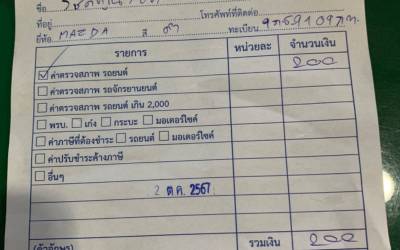 ชื่อ
ที่อยู่ โทรศัพท์ที่ติดต่อ
ยี่ห้อ MAZDA สี ดำ ทะเบียน
รายการ หน่วยละ จำนวนเงิน
☑ ค่าตรวจสภาพ รถยนต์ 200
☐ ค่าตรวจสภาพ รถจักรยานยนต์
☐ ค่าตรวจสภาพ รถยนต์ เกิน 2,000
☐ พรบ. ☐ เก๋ง ☐ กระบะ ☐ มอเตอร์ไซค์
☐ ค่าภาษีที่ต้องชำระ ☐ รถยนต์ ☐ มอเตอร์ไซค์
☐ ค่าปรับชำระค้างภาษี
☐ อื่นๆ
2 ต.ค. 2567
(ตัวอักษร) รวมเงิน 200